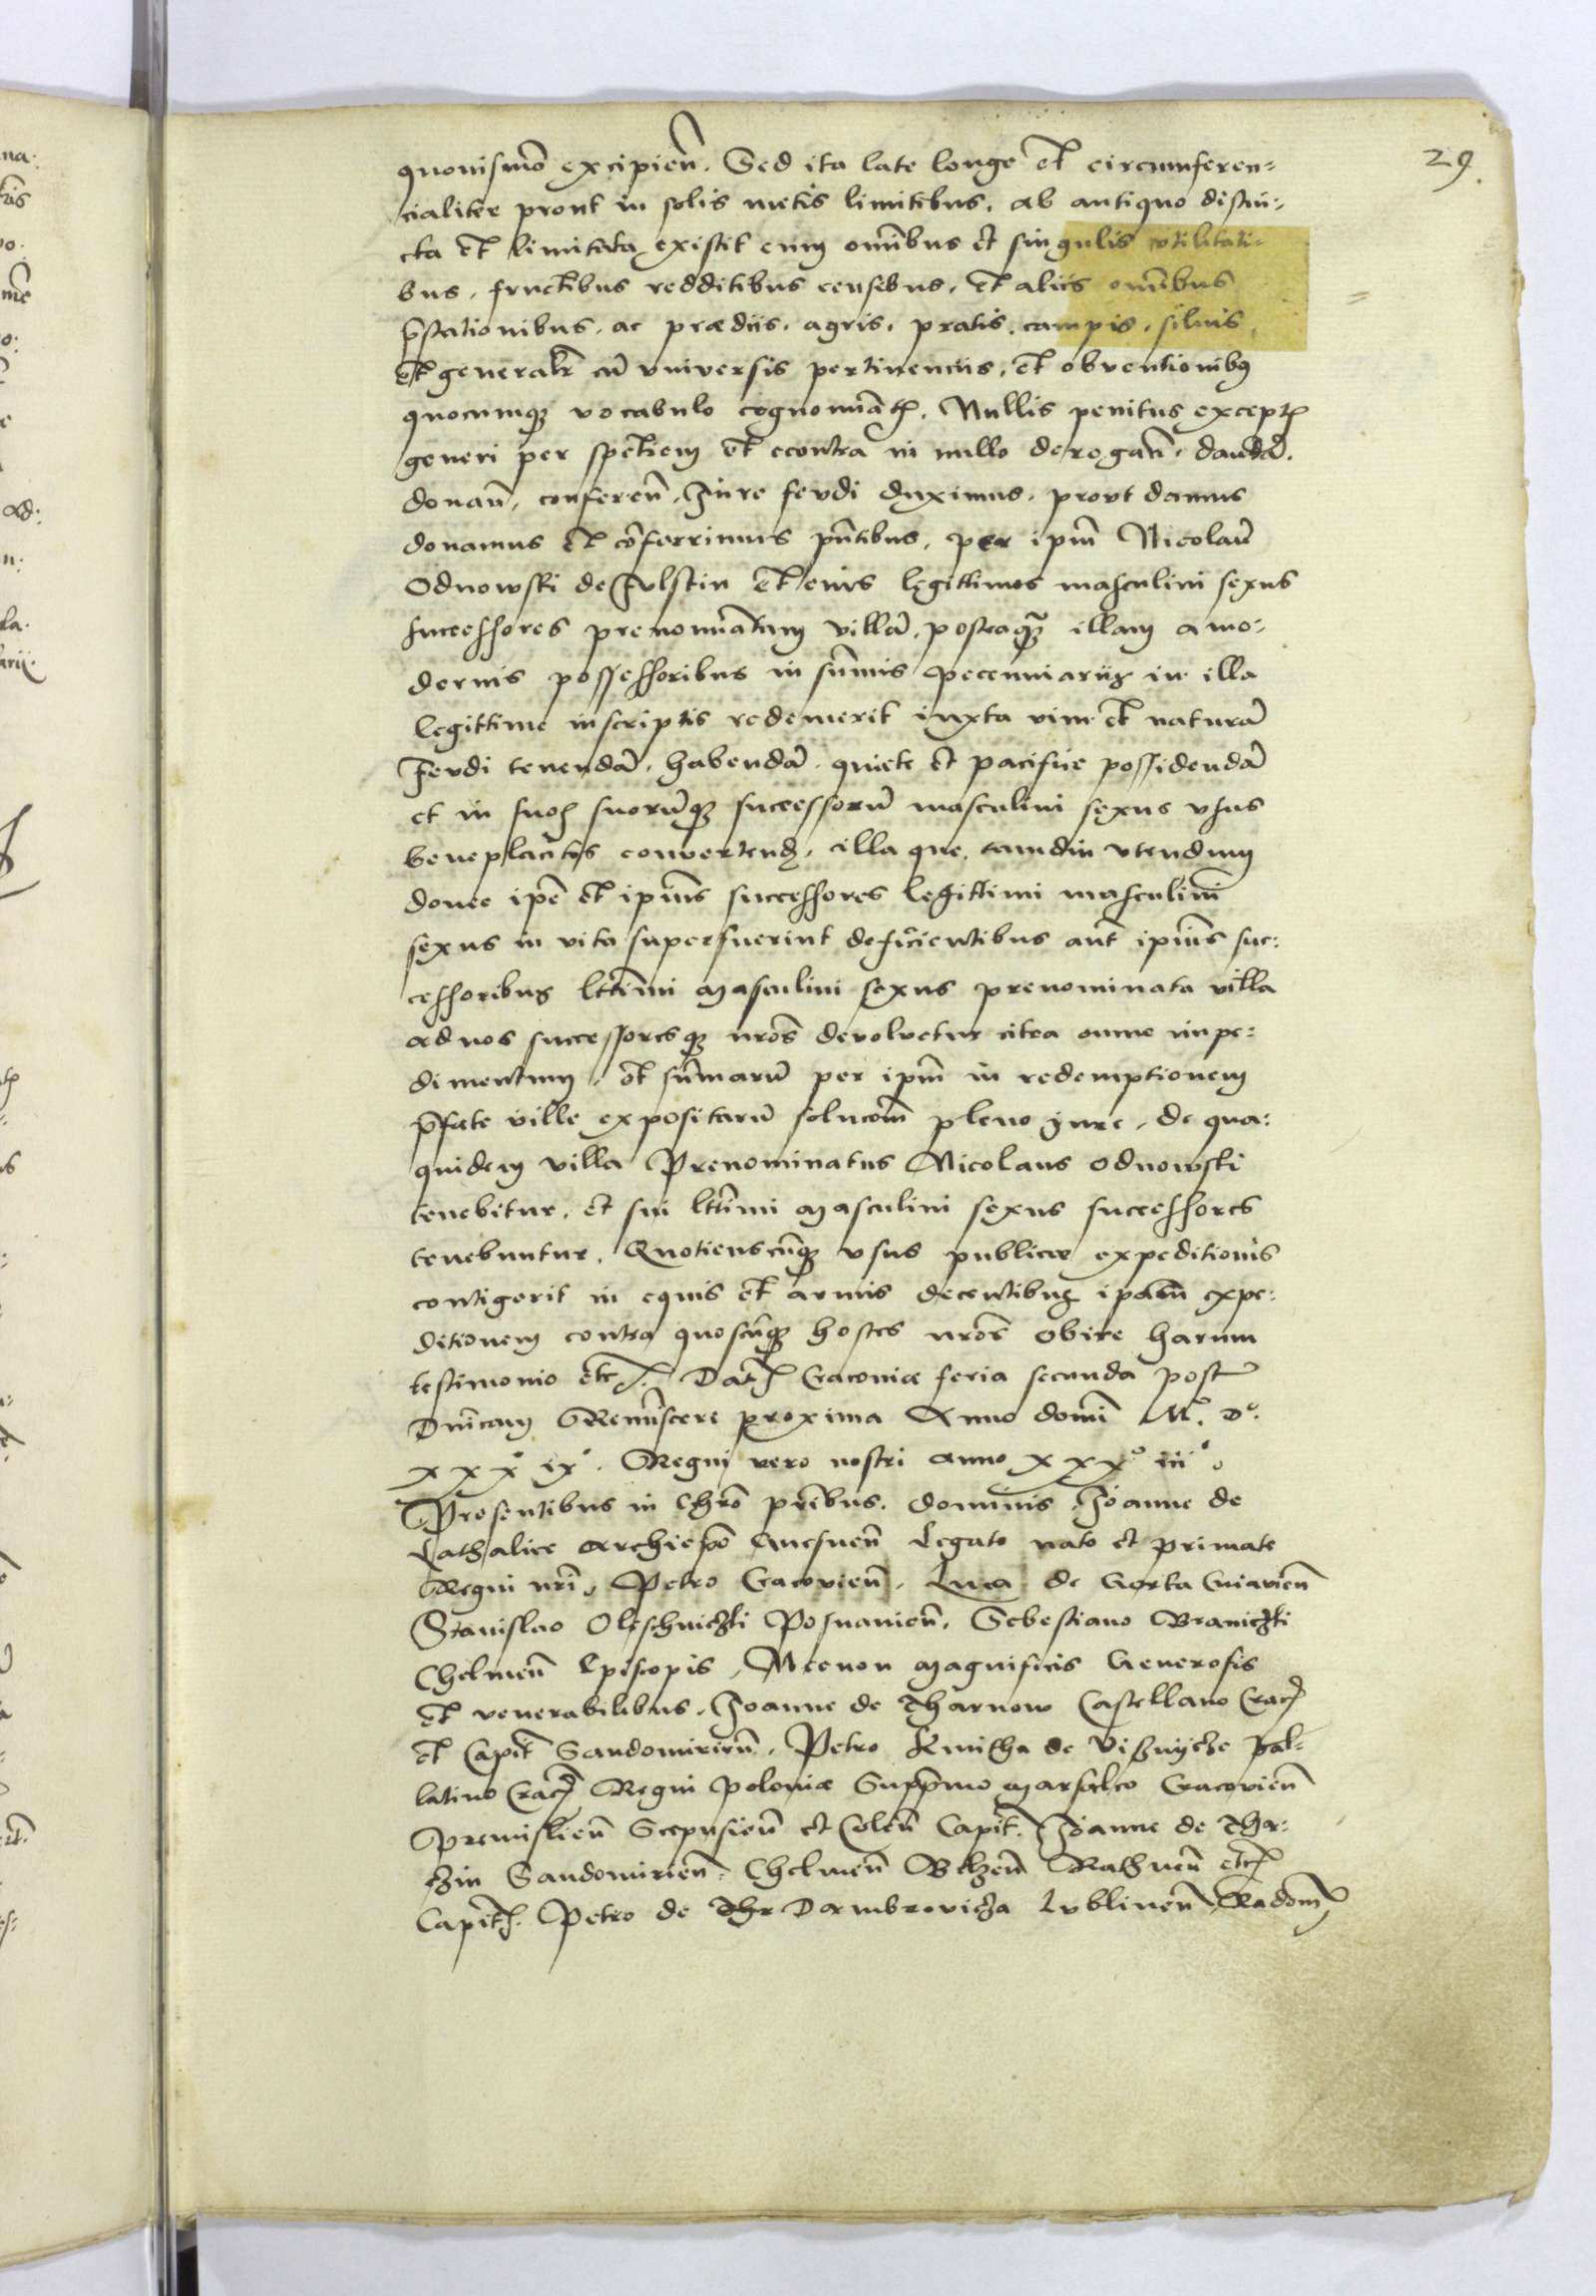 29.
quouismo͞ excipien͞. Sed ita late longe et circumferen=
cialiter prout in solis metis limitibus. ab antiquo distin=
cta et limitata existit cum omībus et singulis vtilitati=
bus. fructibus redditibus censibus. et aliis omībus
p͞stationibus. ac prædiis. agris. pratis. campis. siluis.
et generalr͞ cū vniversis pertinenciis. et obventionibꝰ
quocumqꝫ vocabulo cognomināt. Nullis penitus except
generi per spetiem et econtra in nullo derogan͞. dandā.
donan͞. conferen͞. Jure fevdi duximus. provt damus
donamus et cōferrimus pn͞tibus. per ipm͞ Nicolaū
Odnowski de Fvlstin et eius legittimos masculini sexus
successores prenomīatam villā. posteaqꝫ illam a mo=
dernis possessoribus in sum͞is pecenniariis in illa
legittime inscriptis redemerit iuxta vim et naturā
Fevdi tenendā. habendā. quiete et pacifice possidendā
et in suos suorūqꝫ successorū masculini sexus vsus
beneplacitos convertend. illa que. tamdiu vtendum
donec ipe͞ et ipius͞ successores legittimi masculini
sexus in vita superfuerint deficientibus aut͞ ipius͞ suc=
cessoribus ltt͞imi masculini sexus prenominata villa
ad nos successoresqꝫ nr͞os devolvetur citra omne impe=
dimentum. et sum͞arū per ipm͞ in redemptionem
p͞fate ville expositarū soluco͞m pleno jure. de qua=
quidem villa Prenominatus Nicolaus Odnowski
tenebitur. et sui ltt͞imi masculini sexus successores
tenebuntur. Quotienscūqꝫ vsus publicæ expeditionis
contigerit in equis et armis decentibus ipam͞ expe=
ditionem contra quoscūqꝫ hostes nr͞os obire harum
testimonio etc. Dat Cracoviæ feria secunda post
Dn͞icam Reminiscere proxima Anno domī M°. D°.
xxx° ix°. Regni vero nostri anno xxx° iii°.
Presentibus in Chr͞o pr͞ibus. dominis. Joanne de
Lathalice archiepo͞ Gnesnen͞ Legato nato et primate
Regni nr͞i. Petro Cracovien͞. Luca de Gorka Cuiavien͞
Stanislao Oleschniczki Posnanien͞. Sebestiano Braniczki
Chelmen͞ Episcopis. Necnon magnificis Generosis
et venerabilibus. Joanne de Tharnow Castellano Crac
et Capit Sandomirien͞. Petro Kmitha de Visznijcze pal=
latino Crac Regni poloniæ Supp͞mo marsalco Cracovien͞
premislien͞ Scepusien͞ et Colen͞ Capit. Joanne de Tha=
czin Sandomirien͞. Chelmen͞ Belzen͞ Rathnen͞ etc
Capit. Petro de Thr Dambrovicza Lvblinen͞ Radom͞